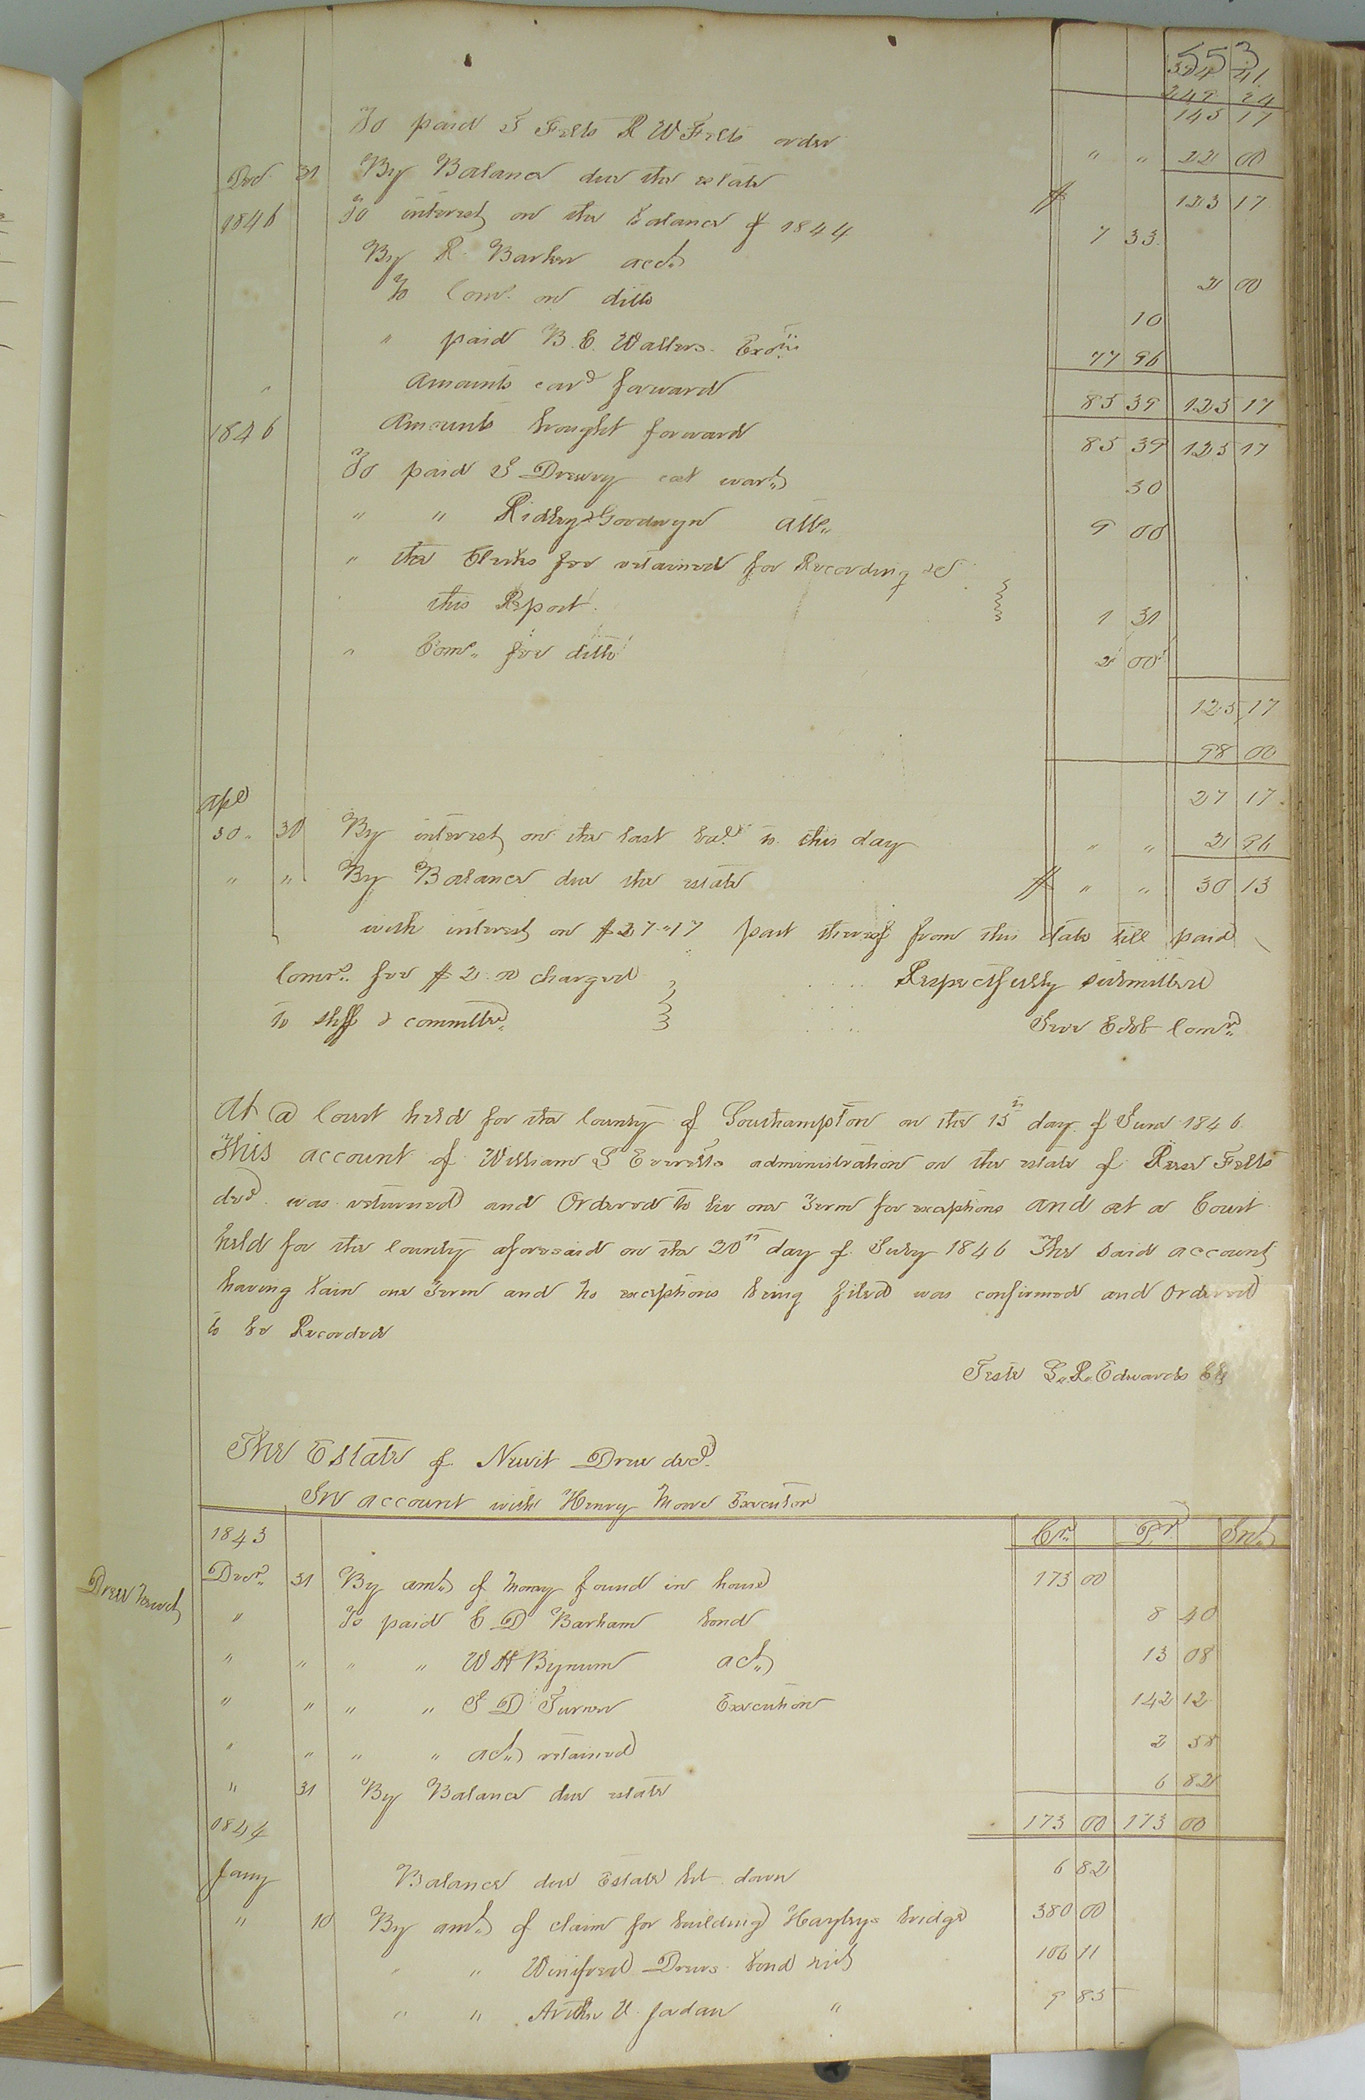 553
324 41
249 24
145 17
To paid S Felts R W Felts order " " 22 00
Dec 31 By Balance due the estate $ 123 17
1846 To interest on the balance of 1844 7 33
By R. Barker acct. 2 00
To Coms. on ditto 10
" paid B. E. Walters. 77 96
" Amounts card forward 85 39 125 17
1846 Amounts brought forward 85 39 125 17
To paid S Drewry cost wart. 30
" " Ridley & Goodwyn Atto. 9 00
" the Clerks fee retained for Recording &c
this Report. 1 31
" Coms. fee ditto 2 00
125 17
98 00
Apl 27 17
30 " 30 By interest on the last bal. to this day " " 2 96
" " By Balance due the estate $ " " 30 13
with interest on $27"17 part thereof from this date till paid
Comrs. fee $2.00 charged Respectfully submitted
to shff & committed. Comr.
At a Court held for the County of Southampton on the 15th day of June 1846
This account of William S Everetts administration on the estate of Rese Felts
decd. was returned and Ordered to lie one Term for exceptions and at a Court
held for the County aforesaid on the 20th day of July 1846 The said account
having lain one Term and no exceptions being filed was confirmed and Ordered
to be Recorded
Teste L. R. Edwards Clk
The Estate of Newit Drew decd.
In account with Henry Moore Executor
1843 Cr. Dr. Int.
Drew Newit
Decr. 31 By amt. of Money found in house 173 00
" To paid E D Barham bond 8 40
" " " " W H Bynum act. 13 08
" " " " S D Turner Execution 142 12
" " " " act. retained 2 58
" 31 By Balance due estate 6 82
1844 173 00 173 00
Jany Balance due Estate bt. down 6 82
" 10 By amt. of claim for building Hayleys bridge 380 00
" " Winifred Drews bond 106 11
" " Arthur U. Jordan " 9 85